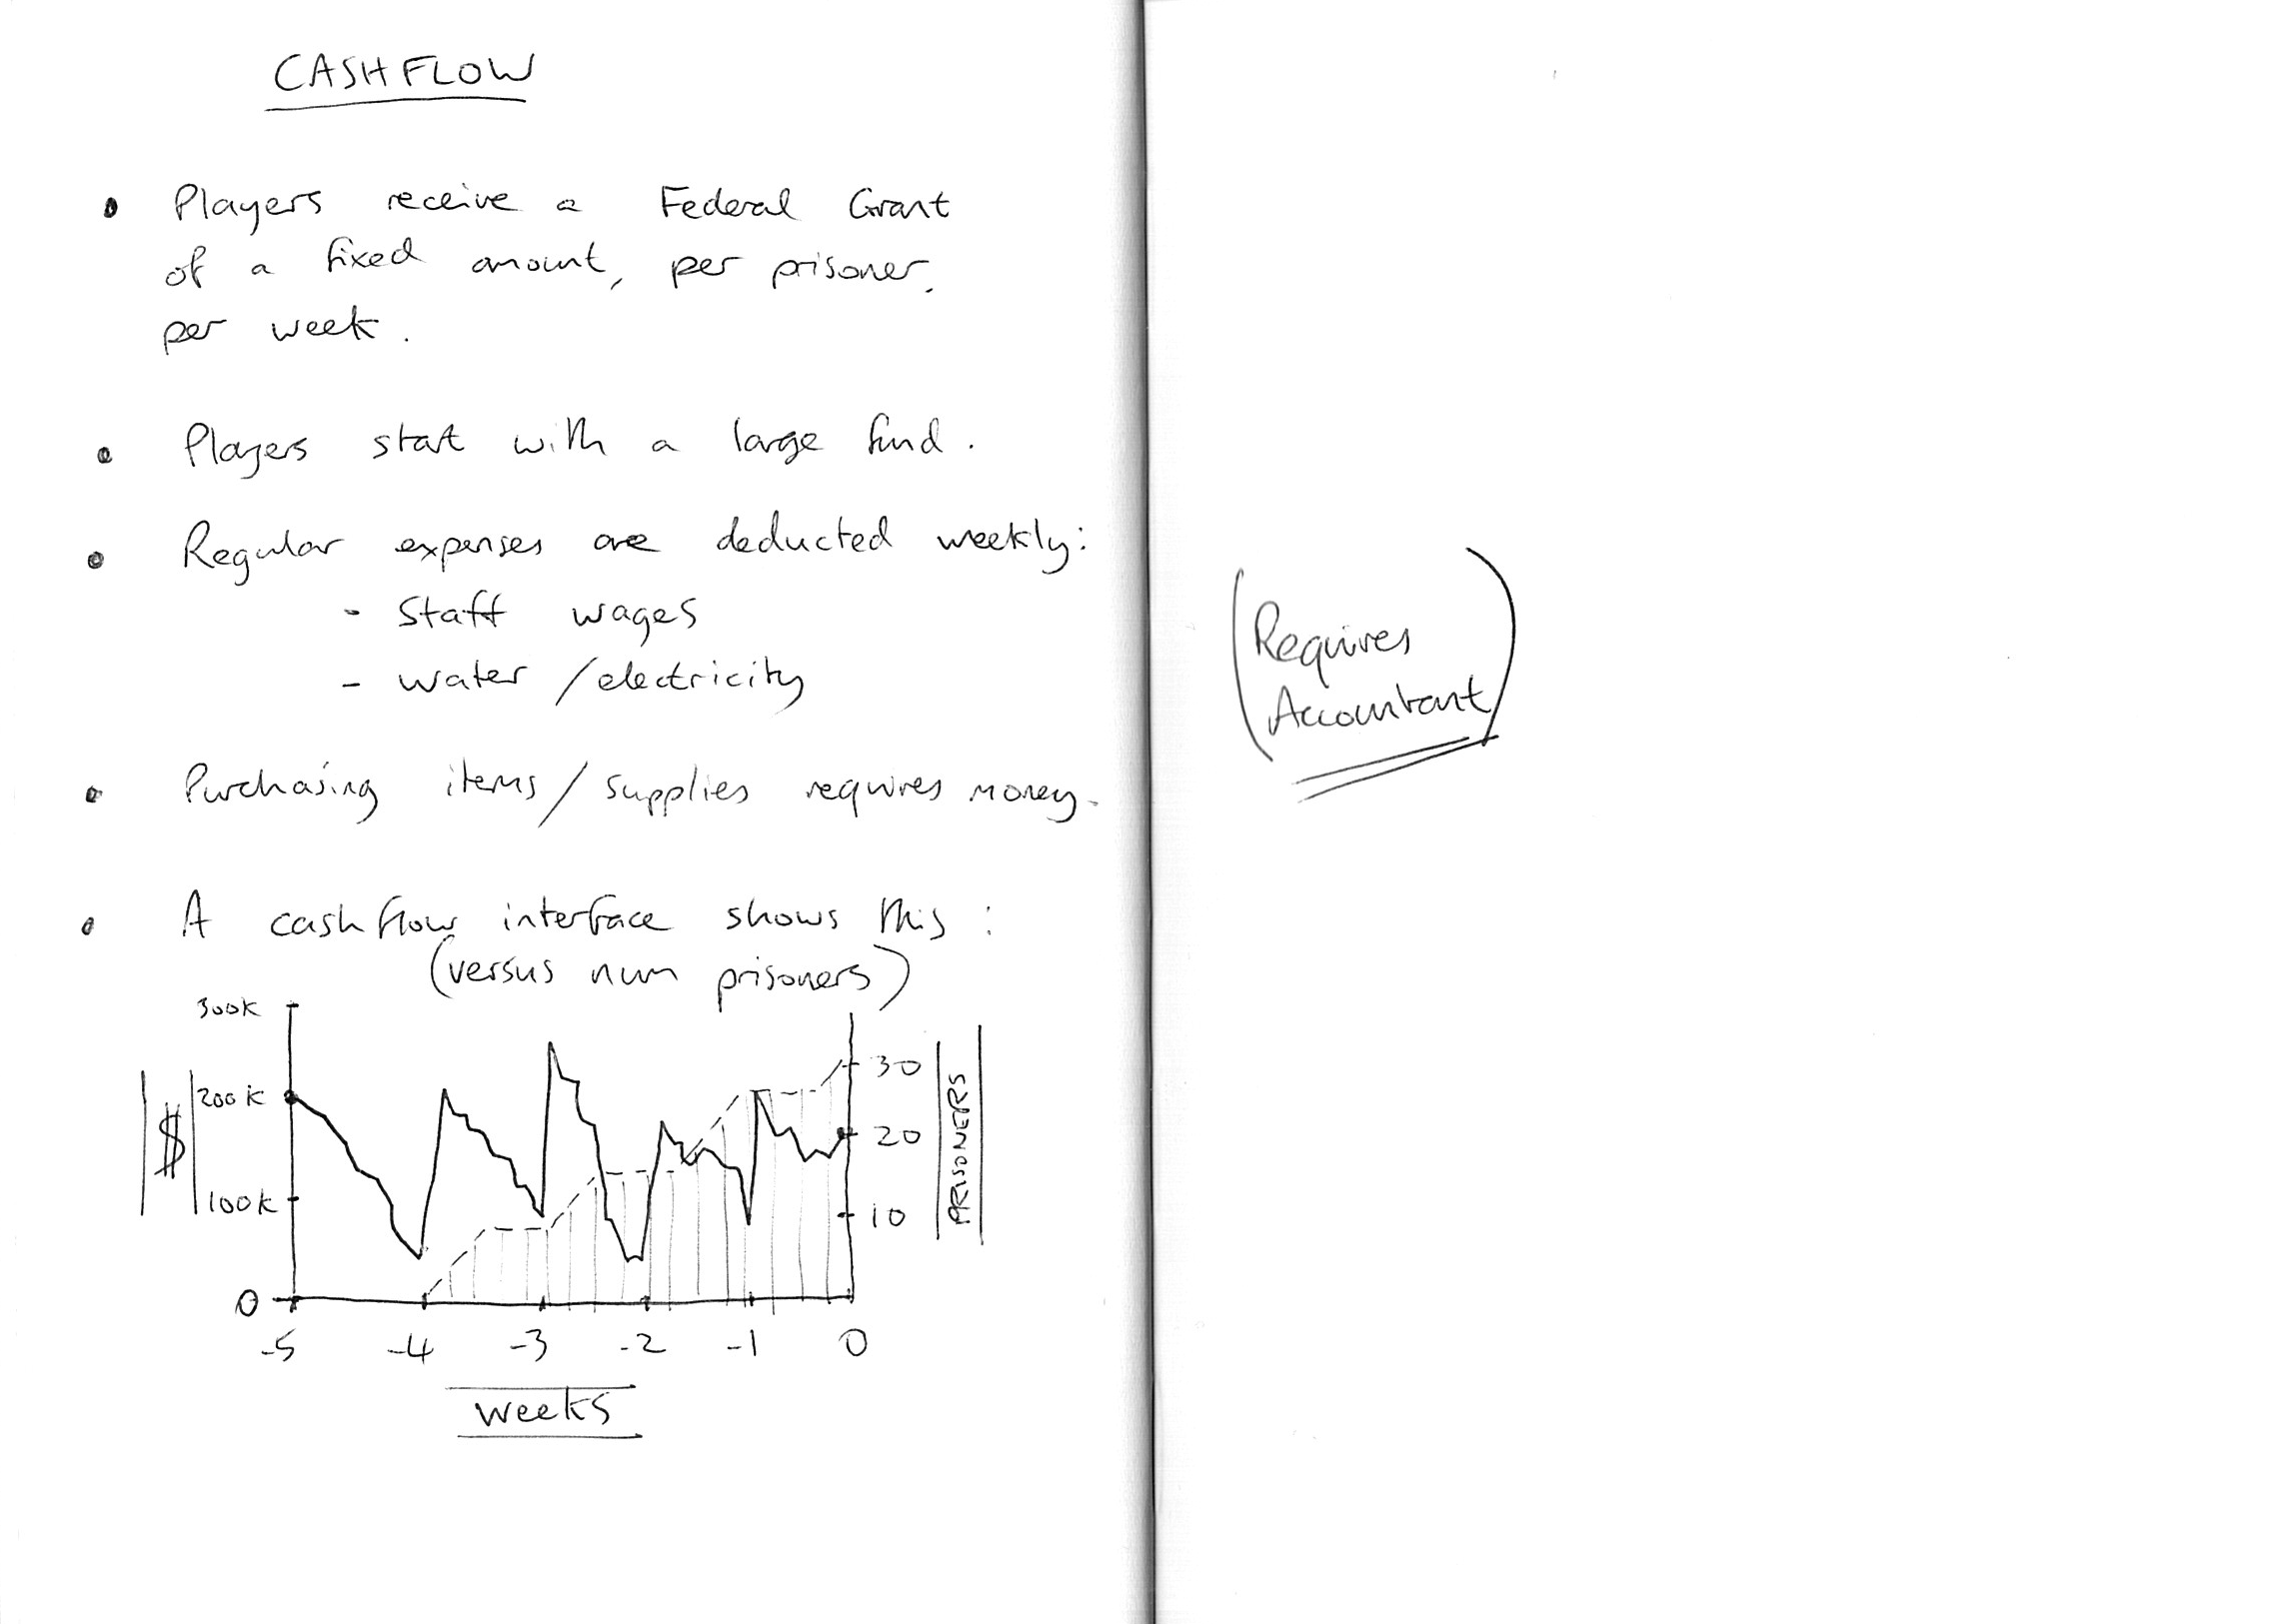 CASHFLOW
• Players receive a Federal Grant
of a fixed amount, per prisoner,
per week.
• Players start with a large fund.
• Regular expenses are deducted weekly:
- Staff wages
- water / electricity
• Purchasing items / supplies requires money.
• A cashflow interface shows this:
(versus num prisoners)
300k
200k
100k
0
$
30
20
10
PRISONERS
-5 -4 -3 -2 -1 0
weeks
(Requires
Accountant)